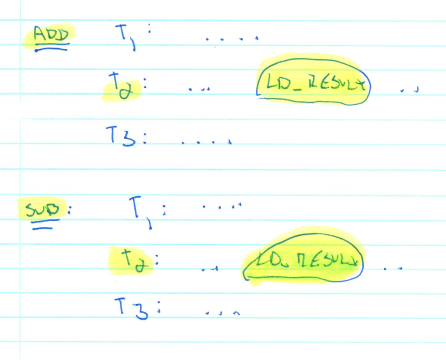 ADD T1: ....
T2: ... LD_RESULT ..
T3: ....
SUB: T1: ....
T2: .. LD_RESULT ..
T3: ...